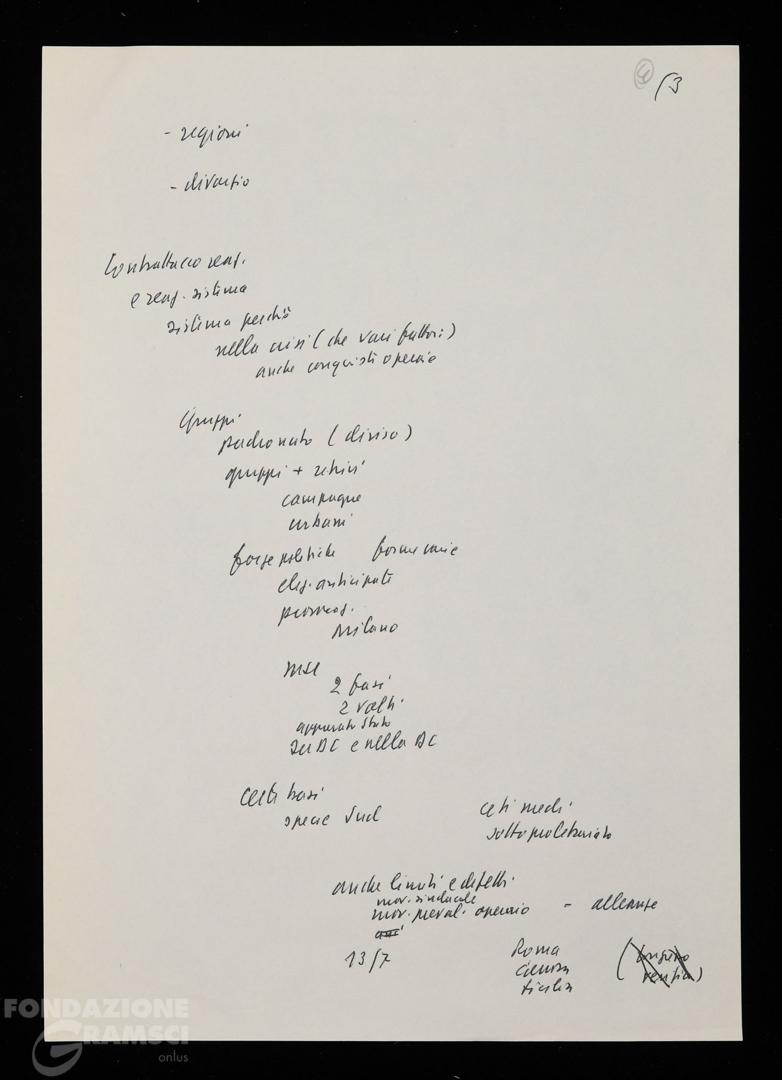 4
/3
- regioni
- divorzio
Contrattacco reaz.
e reaz. sistema
sistema perchè
nella crisi (che vari fattori)
anche conquisti operaie
Gruppi
padronato (diviso)
gruppi + retrivi
campagne
urbani
forze politiche forme varie
elez. anticipate
provocaz.
Milano
MSI
2 fasi
2 volti
apparato Stato
su DC e nella DC
Certe basi
specie Sud
ceti medi
sottoproletariato
anche limiti e difetti
mov. sindacale
mov. preval. operaio - alleanze
13/7 Roma
Genova
Sicilia
FONDAZIONE
GRAMSCI
onlus